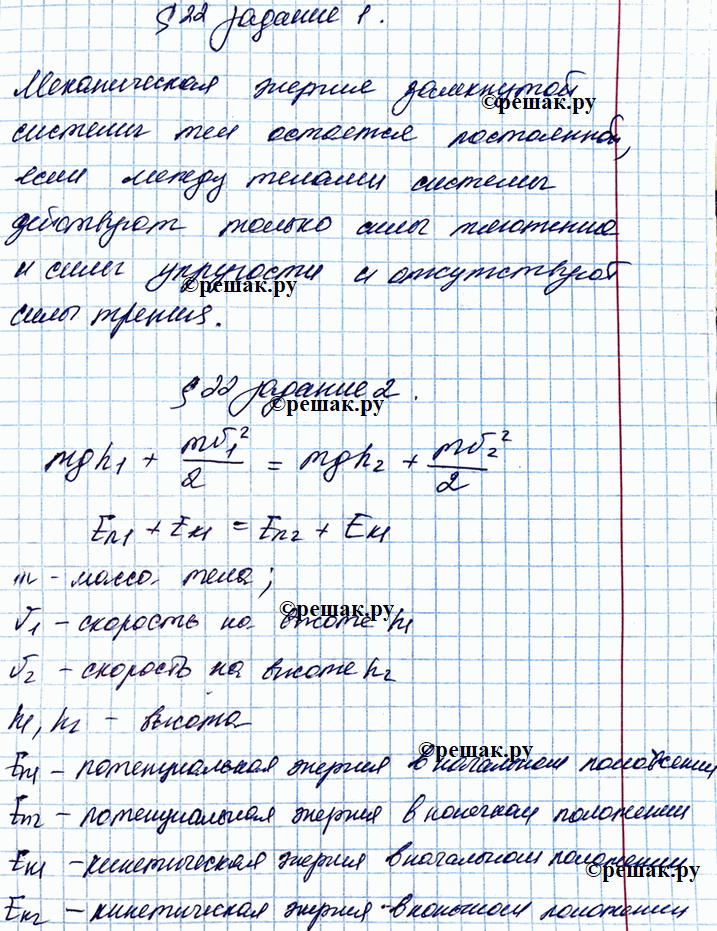 § 22 задание 1.
Механическая энергия замкнутой
©решак.ру
системы тел остается постоянной,
если между телами системы
действуют только силы тяготения
и силы упругости и отсутствуют
©решак.ру
силы трения.
§ 22 задание 2.
©решак.ру
mgh₁ + mv₁²/2 = mgh₂ + mv₂²/2
Eп1 + Eк1 = Eп2 + Eк1
m - масса тела;
©решак.ру
v₁ - скорость на высоте h₁
v₂ - скорость на высоте h₂
h₁, h₂ - высота
©решак.ру
Eп1 - потенциальная энергия в начальном положении
Eп2 - потенциальная энергия в конечном положении
Eк1 - кинетическая энергия в начальном положении
©решак.ру
Eк2 - кинетическая энергия в конечном положении